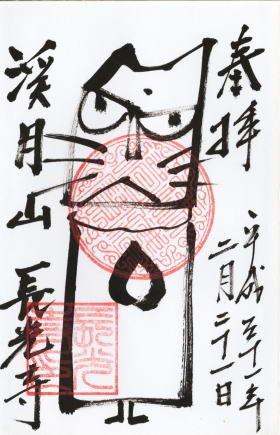 奉拝
平成三十一年
二月二十一日
渓月山 長光寺
長光寺